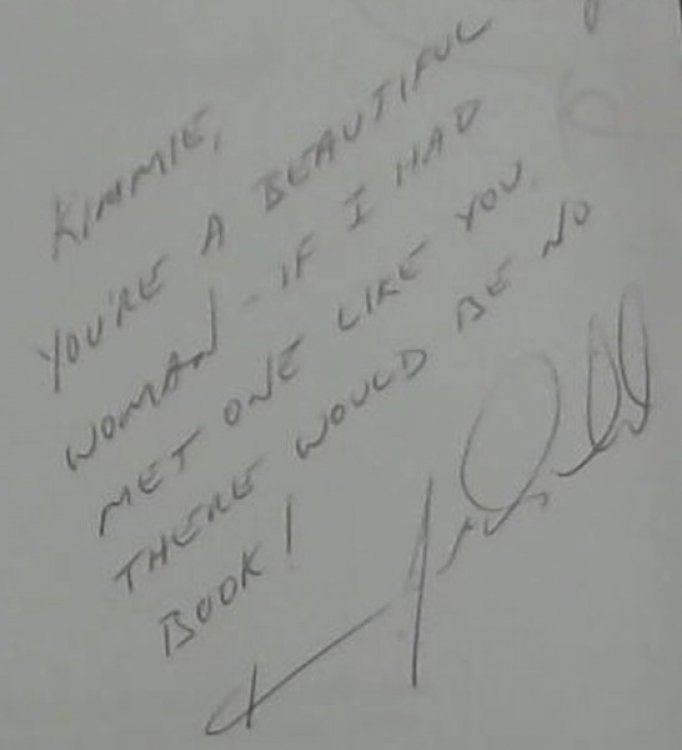 KIMMIE,
YOU'RE A BEAUTIFUL
WOMAN - IF I HAD
MET ONE LIKE YOU
THERE WOULD BE NO
BOOK!